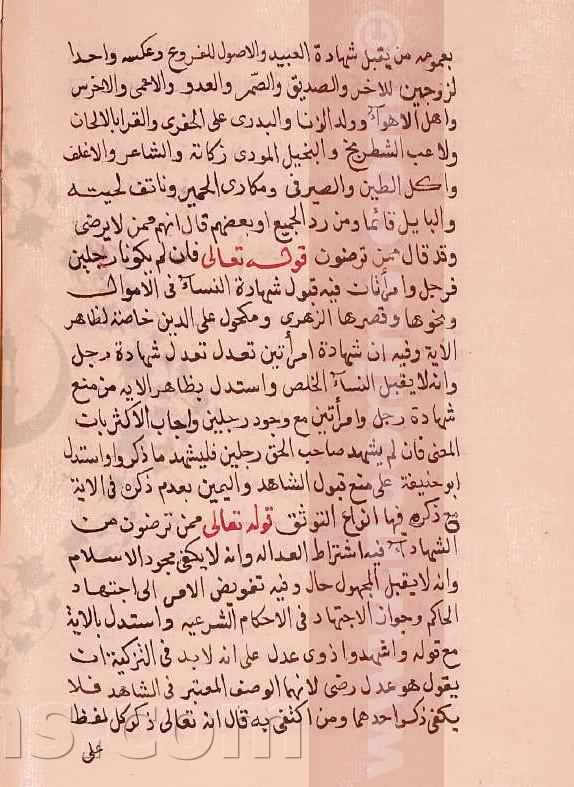 بعمومه من يقبل شهادة العبيد والاصول للفروع وعكسه واحدا
لزوجين للاخر والصديق والصهر والعدو والاعمى والاخرس
واهل الاهوآء وولد الزنا والبدرى على الحضرى والقرا بالالحان
ولاعب الشطرنج والبخيل المودى زكاته والشاعر والاغلف
واكل الطين والصيرفى ومكارى الحمير وناتف لحيته
والبايل قائما ومن رد الجميع او بعضهم قال انهم ممن لا يرضى
وقد قال ممن ترضون قوله تعالى فان لم يكونا رجلين
فرجل وامرأتان فيه قبول شهادة النسآء فى الاموال
ونحوها وقصرها الزهرى ومكحول على الدين خاصة لظاهر
الاية وفيه ان شهادة امرأتين تعدل تعدل شهادة رجل
وانه لا يقبل النسآء الخلص واستدل بظاهر الايه من منع
شهادة رجل وامرأتين مع وجود رجلين واجاب الاكثر بان
المعنى فان لم يشهد صاحب الحق رجلين فليشهد ما ذكر واستدل
ابو حنيفة على منع قبول الشاهد واليمين بعدم ذكره فى الاية
مع ذكره فيها انواع التوثق قوله تعالى ممن ترضون من
الشهدآء فيه اشتراط العداله وانه لا يكفى مجرد الاسلام
وانه لا يقبل المجهول حال وفيه تفويض الامر الى اجتهاد
الحاكم وجواز الاجتهاد فى الاحكام الشرعيه واستدل بالاية
مع قوله واشهدوا ذوى عدل على انه لا بد فى التزكية ان
يقول هو عدل رضى لانهما الوصف المعتبر فى الشاهد فلا
يكفى ذكر احدهما ومن اكتفى به قال انه تعالى ذكر كل لفظا
على